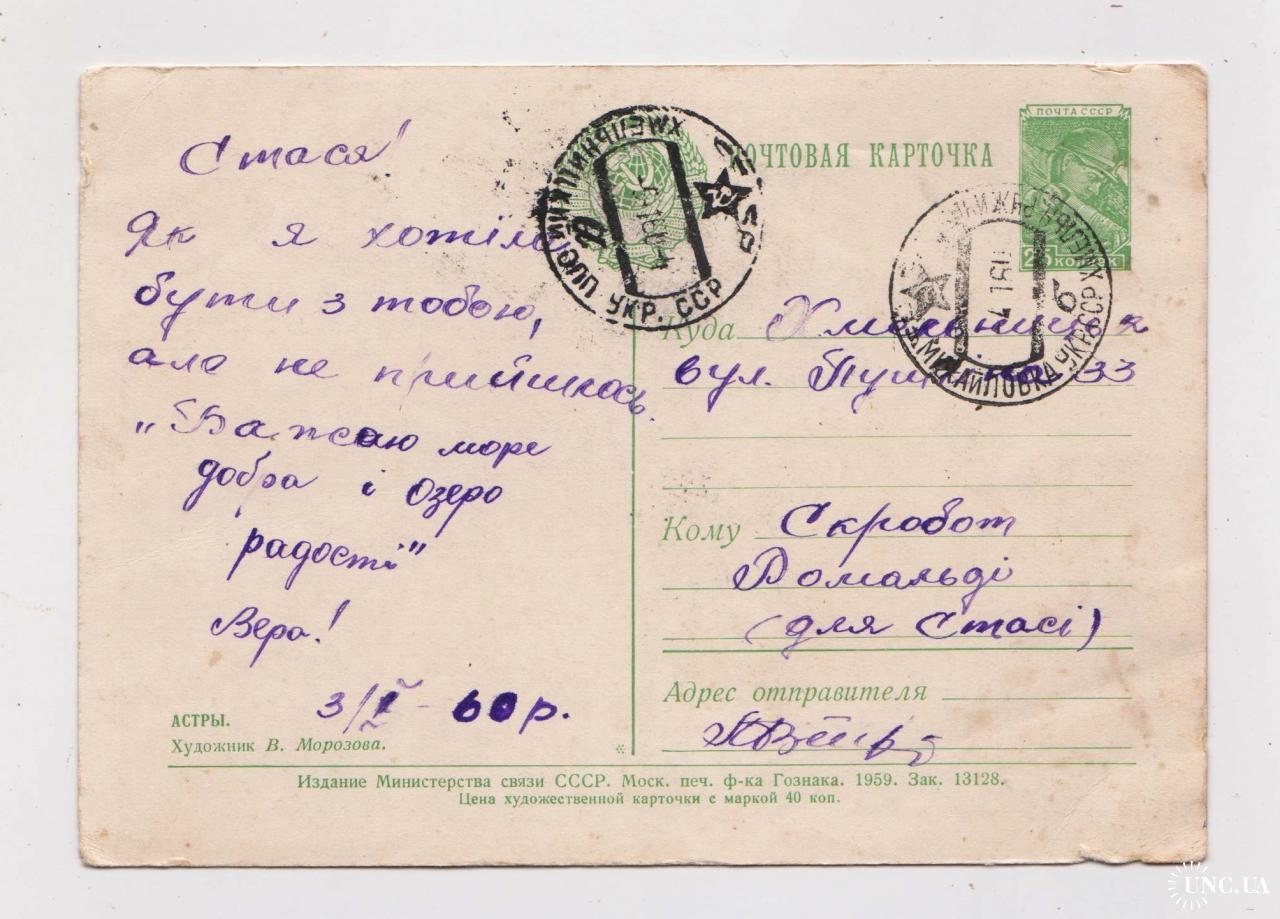 Стася!
Як я хотіла
бути з тобою,
але не прийшлось.
„Бажаю море
добра і озеро
радості"
Вера!
3/I - 60 р.
АСТРЫ.
Художник В. Морозова.
ПОЧТОВАЯ КАРТОЧКА
ПОЧТА СССР
25 КОПЕЕК
УКР. ССР
МИХАЙЛОВКА УКР ССР
б
Куда
вул. 33
Кому Скробот
Ромальді
(для Стасі)
Адрес отправителя
Издание Министерства связи СССР. Моск. печ. ф-ка Гознака. 1959. Зак. 13128.
Цена художественной карточки с маркой 40 коп.
UNC.UA